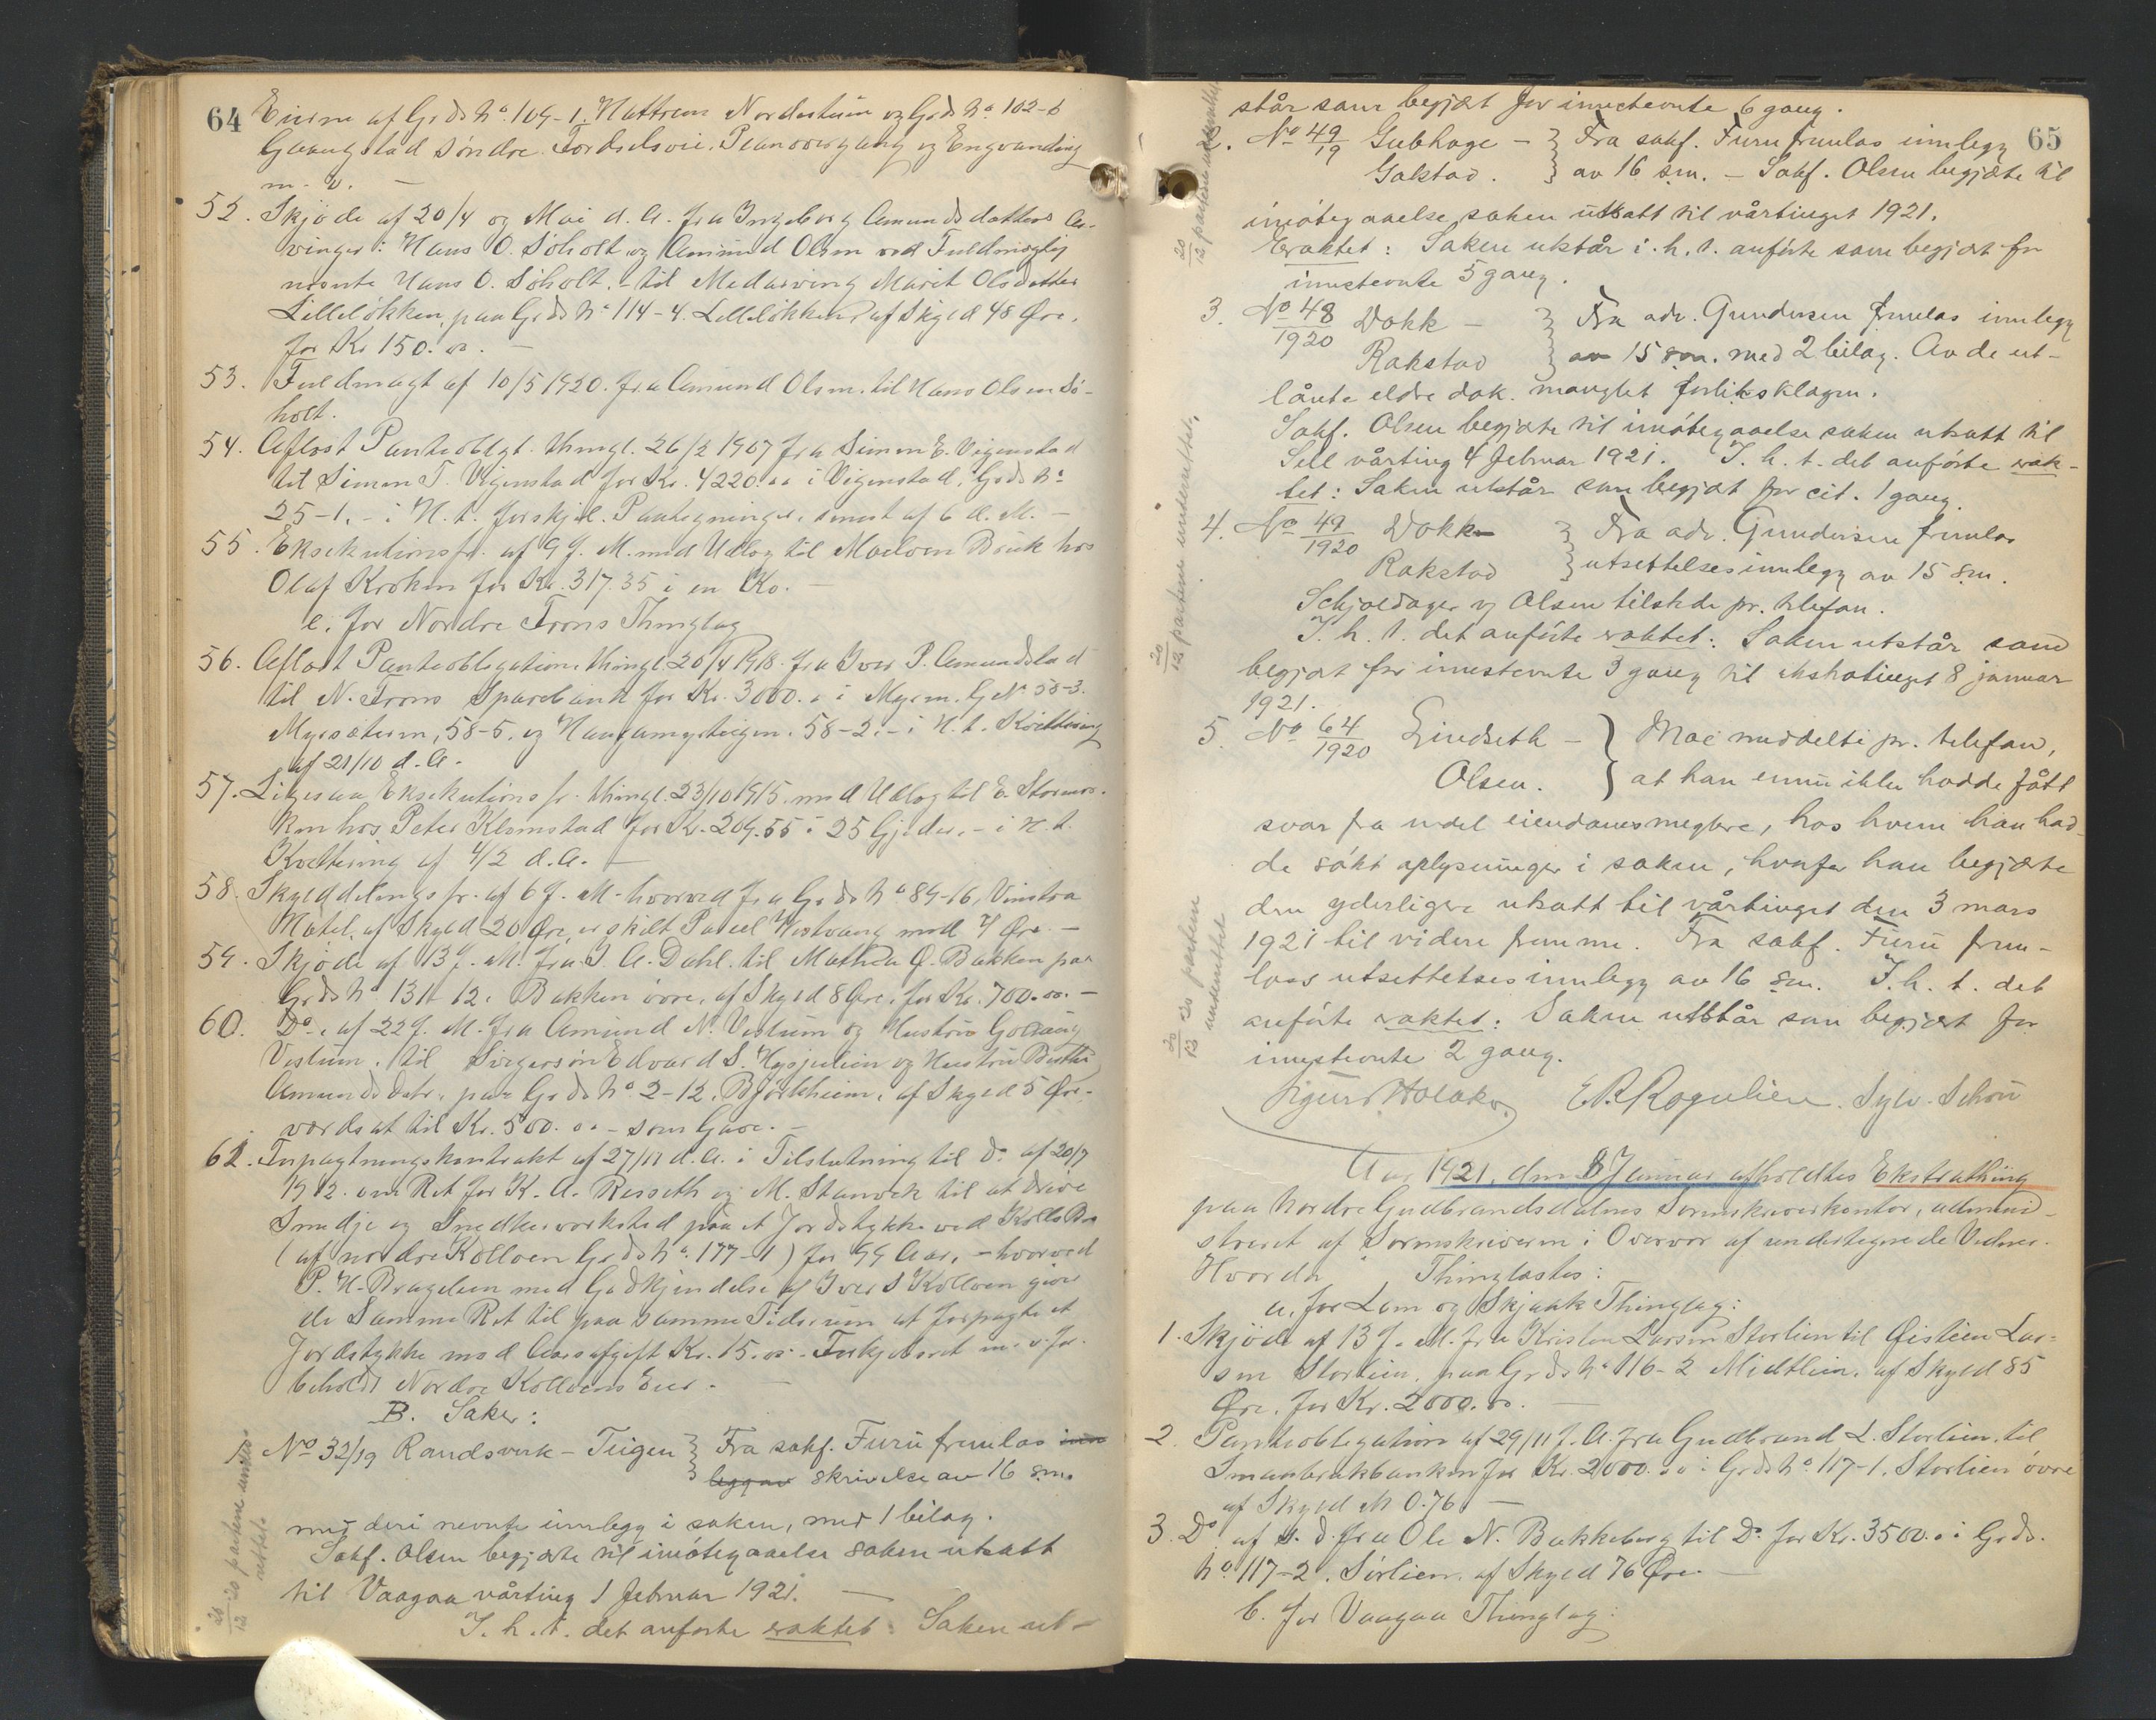 64
Eierne af Grds No 109-1. Hattrem Nordistuen og Grds No 102-6
Graugstad søndre. Fordelsvei. Planovergang og Engvanding
m. v. —
52. Skjøde af 20/4 og Mai d. A. fra Ingeborg Amundsdatters Ar-
vinger: Hans O. Søholt og Amund Olsen ved Fuldmægtig
nævnte Hans O. Søholt. - til Medarving Marit Olsdatter
Lilleløkken, paa Grds No 114-4. Lilleløkken, af Skyld 48 Øre.
for Kr 150. 00. —
53. Fuldmagt af 10/5 1920. fra Amund Olsen. til Hans Olsen Sø-
holt.
54. Aflæst Panteobligt. thingl. 26/2 1907 fra Simen E. Vigenstad
til Simen T. Vigenstad for Kr. 4220.00 i Vigenstad, Grds No
25-1. - i H. t. forskjel. Paategninger, senest af 6 d. M. —
55. Eksekutionsfr. af 9 f. M. med Udlæg til Moelven Bruk hos
Olaf Kroken for Kr. 317.35 i en Ko. —
e. for Nordre Frons Thinglag
56. Aflæst Panteobligation thingl. 20/4 1918. fra Iver P. Amundstad
til N. Frons Sparebank for Kr. 3000. 00 i Myrm. G No 58-3.
Myrsæteren, 58-5. og Haugamyrteigen. 58-2. - i H. t. Kvittering
af 21/10 d. A.
57. Ligesaa Eksekutionsfr. thingl. 23/10 1915. med Udlæg til E. Stormo.
ken hos Peter Klomstad for Kr. 209.55 i 25 Gjeder. - i H. t.
Kvittering af 4/2 d. A. —
58. Skylddelingsfr. af 6 f. M. hvorved fra Grds No 89-16, Vinstra
Hotel, af Skyld 20 Øre, er skilt Parcel Vestvang med 7 Øre. —
59. Skjøde af 13 f. M. fra J. A. Dahl. til Mathea O. Bakken paa
Grds No 131-12. Bakken øvre, af Skyld 8 Øre. for Kr. 700.00. —
60. Do. af 22 f. M. fra Amund N. Vistum og Hustru
Vistum. til Svigersøn Edvard S. og Hustru
Amundsdatr. paa Grds No 2-12. Bjørkheim, af Skyld 5 Øre.
værdsat til Kr. 500. 00 - som Gave. —
61. Forpagtningskontrakt af 27/11 d. A. i Tilslutning til Do af 20/7
1912. om Ret for K. A. Risseth og M. Stanvik til at drive
Smedje og Snedkerværksted paa et Jordstykke ved Kolls Bro
(af nordre Kolloen Grds No. 177-1) for 99 Aar, - hvorved
P. H. Bragelien med Godkjendelse af Iver S Kolloen giver
de Samme Ret til paa samme Tidsrum at forpagte et
Jordstykke mod Aarsafgift Kr. 15. 00. - Forkjøbsret m. v. for-
beholdt Nordre Kolloens Eier. —
B. Saker:
1. No 32/19 Randsverk - Teigen } Fra sakf. Furu fremlas inn
legg av skrivelse av 16 dm.
med deri nevnte innlegg i saken, med 1 bilag.
Sakf. Olsen begjærte til imøtegaaelse saken utsatt
til Vaagaa vårting 1 februar 1921. —
I. h. t. det anførte vaktet: Saken ut-
20/12 20 partene under-
rettet.
65
står som begjært for innstevnte 6 gang.
2. No 49/19 Gubhage - } Fra sakf. Furu fremlas innlegg
Gakstad. } av 16 dm. - Sakf. Olsen begjærte til
imøtegaaelse saken utsatt til vårtinget 1921.
Eraktet: Saken utstår i. h. t. anførte som begjært for
innstevnte 5 gang.
3. No 48/1920 Vokk - } Fra adv. Gundersen fremlas innlegg
Rakstad } av 15 dm. med 2 bilag. Av de ut-
lånte eldre dok. manglet forliksklagen.
Sakf. Olsen begjærte til imøtegaaelse saken utsatt til
Sell vårting 4 februar 1921. I. h. t. det anførte erak-
tet: Saken utstår som begjært for cit. 1 gang.
4. No 49/1920 Vokk } Fra adv. Gundersen fremlas
Rakstad } utsettelsesinnlegg av 15 dm.
Schjoldager og Olsen tilstede pr. telefon.
I. h. t. det anførte eraktet: Saken utstår som
begjært for innstevnte 3 gang til ekstratinget 8 januar
1921.
5. No 64/1920 Lindseth - } Moe meddelte pr. telefon,
Olsen. } at han ennu ikke hadde fått
svar fra endel eiendomsmeglere, hos hvem han had-
de søkt oplysninger i saken, hvorfor han begjærte
den yderligere utsatt til vårtinget den 3 mars
1921 til videre fremme. Fra sakf. Furu frem-
laas utsettelsesinnlegg av 16 dm. I. h. t. det
anførte eraktet: Saken utstår som begjært for
innstevnte 2 gang.
Sigurd Holaker E. R. Rogulien. Sylv. Schou
Aar 1921. den 8 Januar afholdtes Ekstrathing
paa Nordre Gudbrandsdalens Sorenskriverkontor, admini-
streret af Sorenskriveren i Overvær af undertegnede Vidner.
Hvorda Thinglæstes:
a. for Lom og Skjaak Thinglag:
1. Skjøde af 13 f. M. fra Kristen Larsen Storlien til Øistein Lar-
sen Storlien. paa Grds No 116-2 Midtlien. af Skyld 85
Øre. for Kr. 2000. 00. —
2. Panteobligation af 29/11 f. A. fra Gudbrand L. Storlien. til
Smaabrukbanken for Kr. 2000. 00 i Grds No. 117-1. Storlien øvre
af Skyld M 0.76. —
3. Do af s. d. fra Ole N. Bakkeberg til Do for Kr. 3500. 00 i Grds.
No. 117-2. Sørlien. af Skyld 76 Øre. —
b. for Vaagaa Thinglag:
20/12 partene underrettet
20/12 partene underrettet.
20/12 20 partene
underrettet